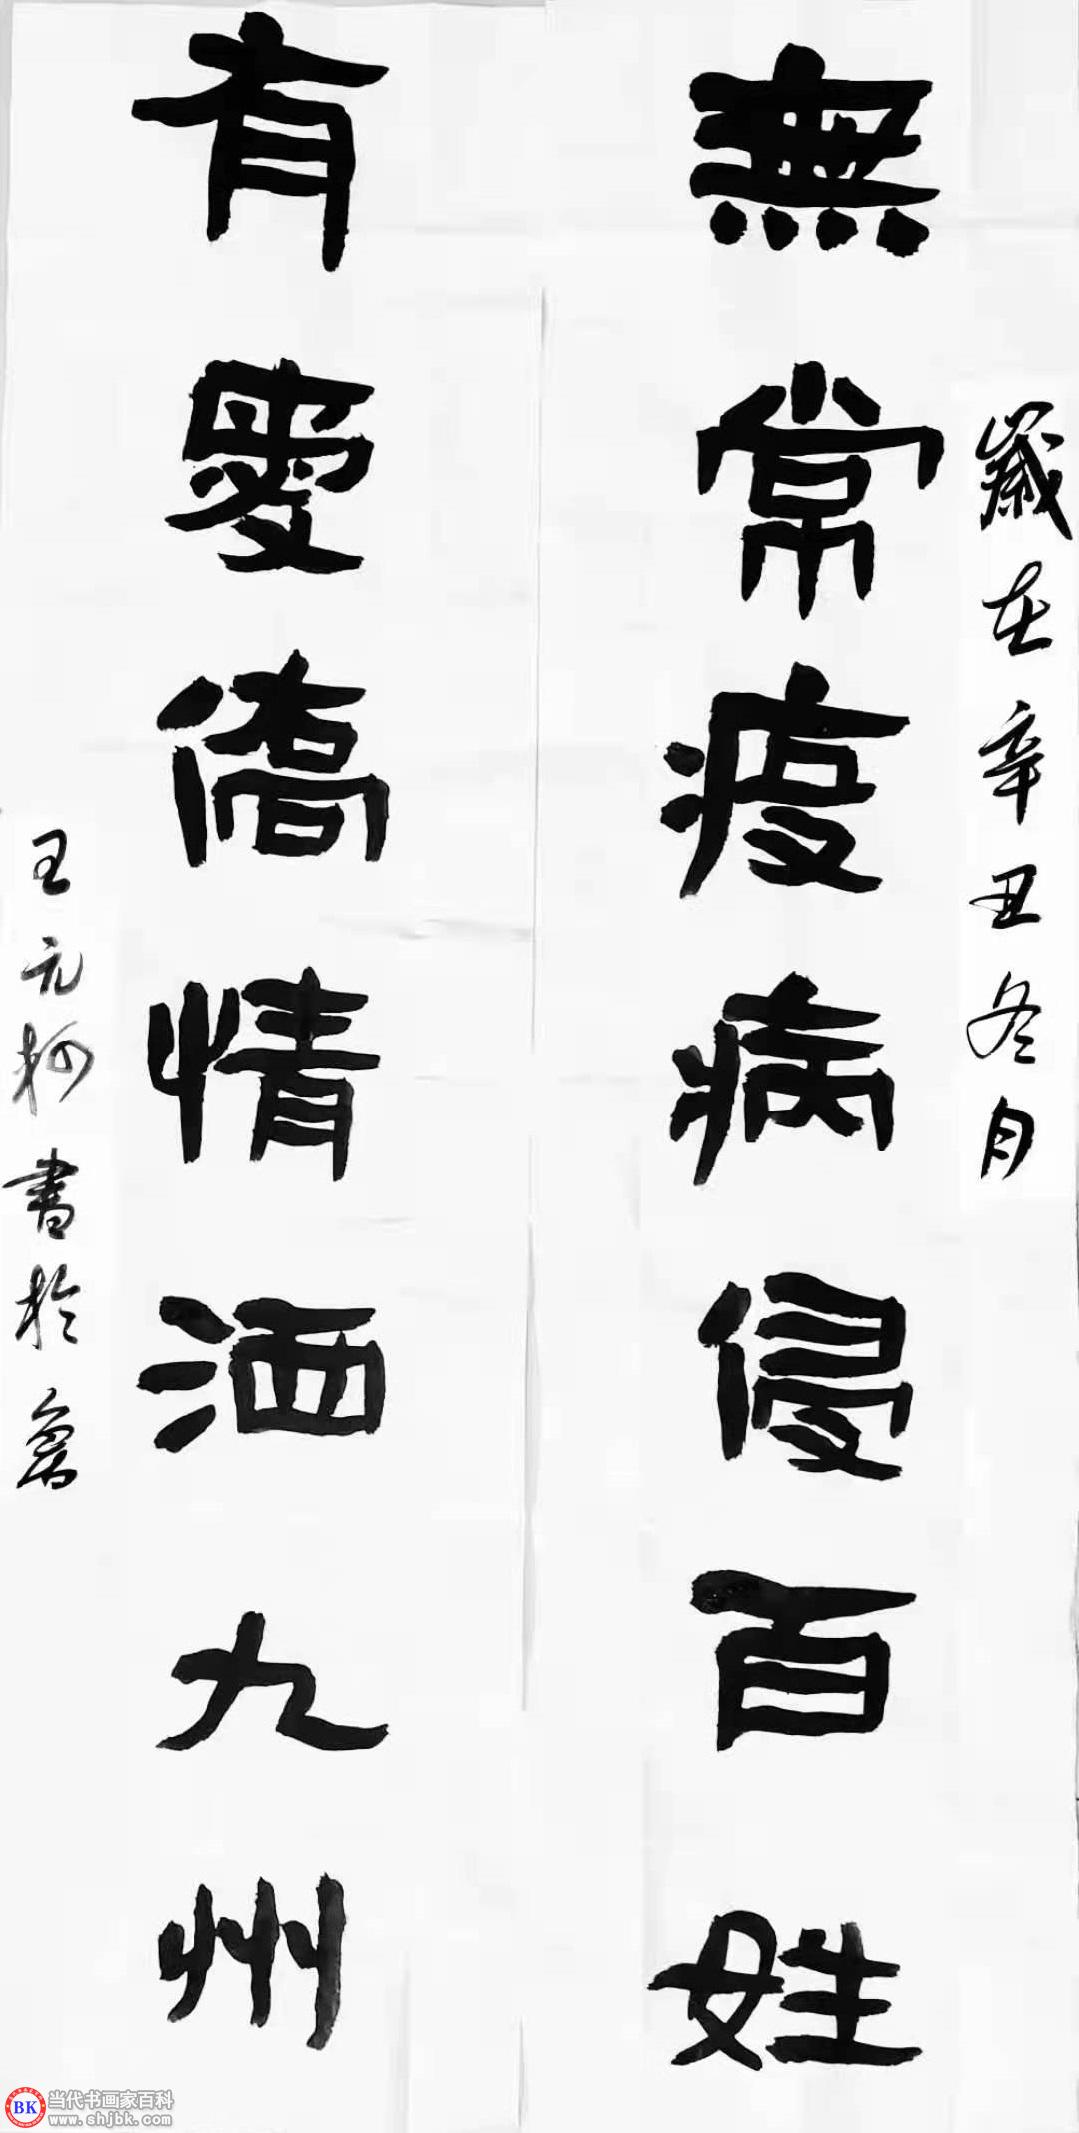 歲在辛丑冬月
無常疫病侵百姓
有愛僑情洒九州
王元柯書於魯
BK
当代书画家百科
www.shjbk.com